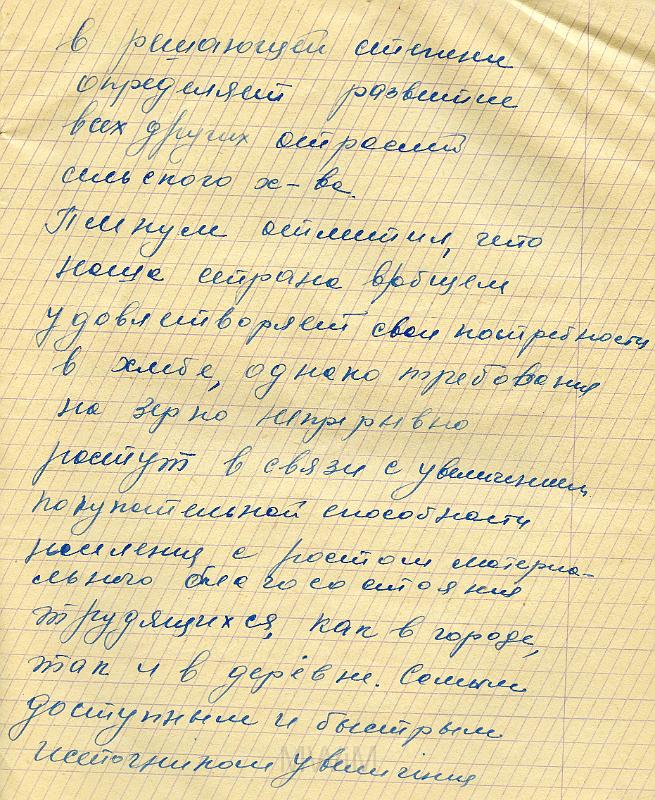 в решающей степени
определяет развитие
всех других отраслей
сельского х-ва.
Пленум отметил, что
наша страна вобщем
удовлетворяет свои потребности
в хлебе, однако требования
на зерно непрерывно
растут в связи с увеличением
покупательной способности
населения с ростом материа-
льного благосостояния
трудящихся, как в городе,
так и в деревне. Самым
доступным и быстрым
источником увеличения